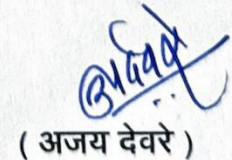 ( अजय देवरे )